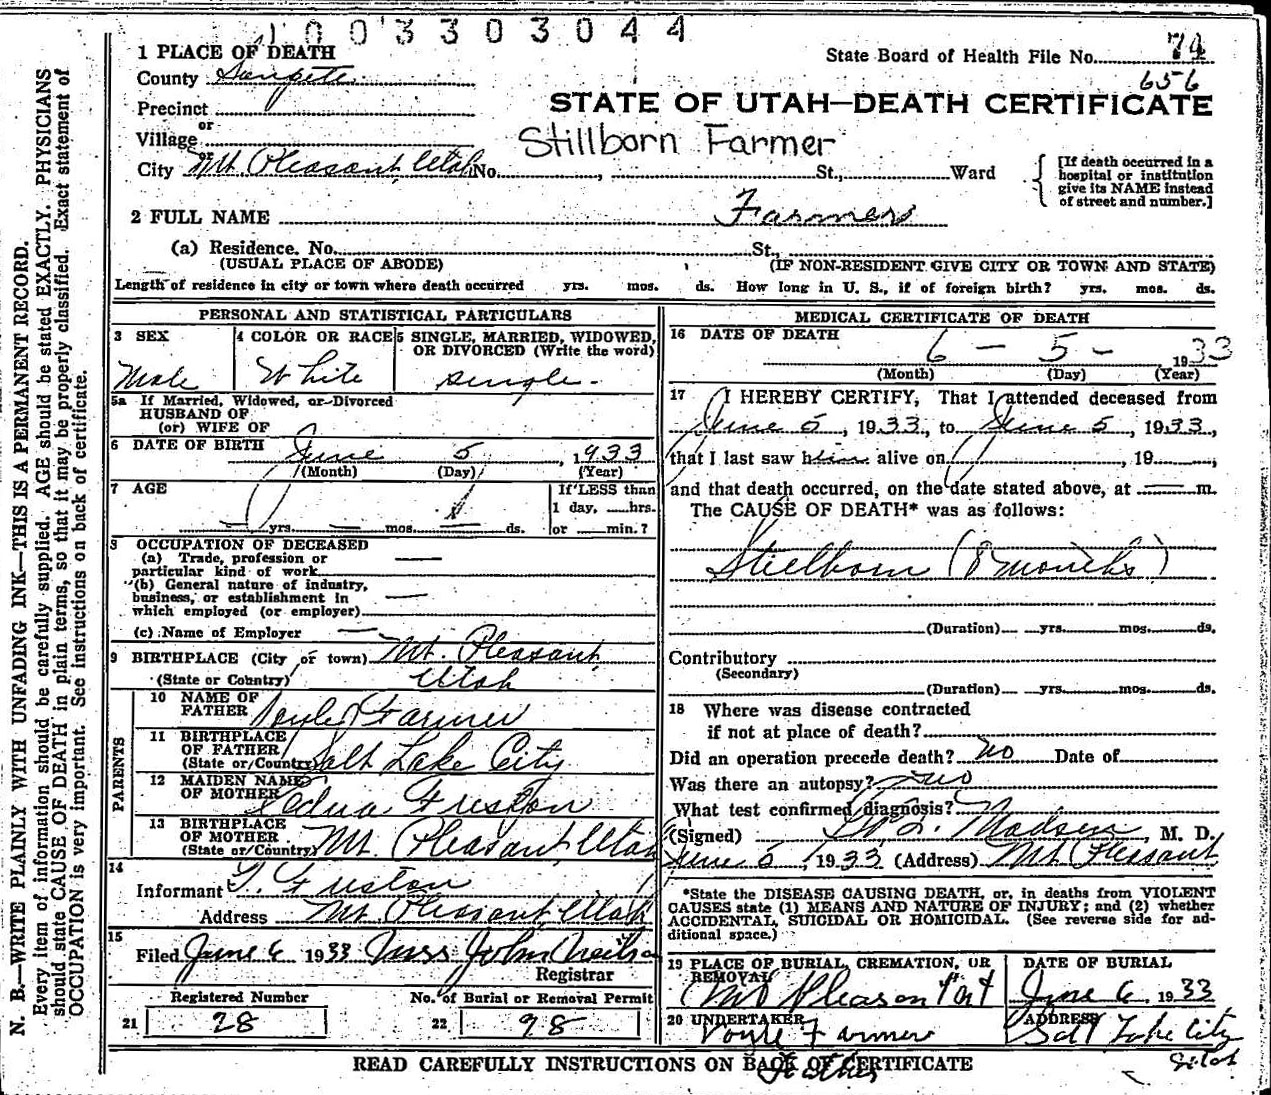 1003303044
State Board of Health File No. 74
656
1 PLACE OF DEATH
County Sanpete
STATE OF UTAH—DEATH CERTIFICATE
Precinct
or
Village
Stillborn Farmer
or
City Mt. Pleasant, Utah No. , St., Ward
[If death occurred in a
hospital or institution
give its NAME instead
of street and number.]
2 FULL NAME Farmer
(a) Residence. No. St.,
(USUAL PLACE OF ABODE) (IF NON-RESIDENT GIVE CITY OR TOWN AND STATE)
Length of residence in city or town where death occurred yrs. mos. ds. How long in U. S., if of foreign birth? yrs. mos. ds.
PERSONAL AND STATISTICAL PARTICULARS
3 SEX
Male
4 COLOR OR RACE
White
5 SINGLE, MARRIED, WIDOWED,
OR DIVORCED (Write the word)
single.
5a If Married, Widowed, or Divorced
HUSBAND OF
(or) WIFE OF
6 DATE OF BIRTH June 5, 1933
(Month) (Day) (Year)
7 AGE
— yrs. — mos. — ds.
If LESS than
1 day, hrs.
or min.?
8 OCCUPATION OF DECEASED
(a) Trade, profession or
particular kind of work —
(b) General nature of industry,
business, or establishment in
which employed (or employer) —
(c) Name of Employer —
9 BIRTHPLACE (City or town) Mt. Pleasant,
(State or Country) Utah
PARENTS
10 NAME OF
FATHER Farmer
11 BIRTHPLACE
OF FATHER
(State or Country) Salt Lake City
12 MAIDEN NAME
OF MOTHER Fuston
13 BIRTHPLACE
OF MOTHER
(State or Country) Mt. Pleasant, Utah
14
Informant Fuston
Address Mt Pleasant, Utah
15
Filed June 6 1933 John
Registrar
Registered Number
21 28
No. of Burial or Removal Permit
22 98
MEDICAL CERTIFICATE OF DEATH
16 DATE OF DEATH
6 — 5 — 1933
(Month) (Day) (Year)
17 I HEREBY CERTIFY, That I attended deceased from
June 5, 1933, to June 5, 1933,
that I last saw him alive on , 19 ,
and that death occurred, on the date stated above, at — m.
The CAUSE OF DEATH* was as follows:
Stillborn (8 months)
(Duration) yrs. mos. ds.
Contributory
(Secondary)
(Duration) yrs. mos. ds.
18 Where was disease contracted
if not at place of death?
Did an operation precede death? no Date of
Was there an autopsy? no
What test confirmed diagnosis?
(Signed) Madsen, M. D.
June 5, 1933 (Address) Mt Pleasant
*State the DISEASE CAUSING DEATH, or, in deaths from VIOLENT
CAUSES state (1) MEANS AND NATURE OF INJURY; and (2) whether
ACCIDENTAL, SUICIDAL OR HOMICIDAL. (See reverse side for ad-
ditional space.)
19 PLACE OF BURIAL, CREMATION, OR
REMOVAL
Mt Pleasant
DATE OF BURIAL
June 6 1933
20 UNDERTAKER
Farmer
Father
ADDRESS
Salt Lake City
Utah
READ CAREFULLY INSTRUCTIONS ON BACK OF CERTIFICATE
N. B.—WRITE PLAINLY WITH UNFADING INK—THIS IS A PERMANENT RECORD.
Every item of information should be carefully supplied. AGE should be stated EXACTLY. PHYSICIANS
should state CAUSE OF DEATH in plain terms, so that it may be properly classified. Exact statement of
OCCUPATION is very important. See instructions on back of certificate.